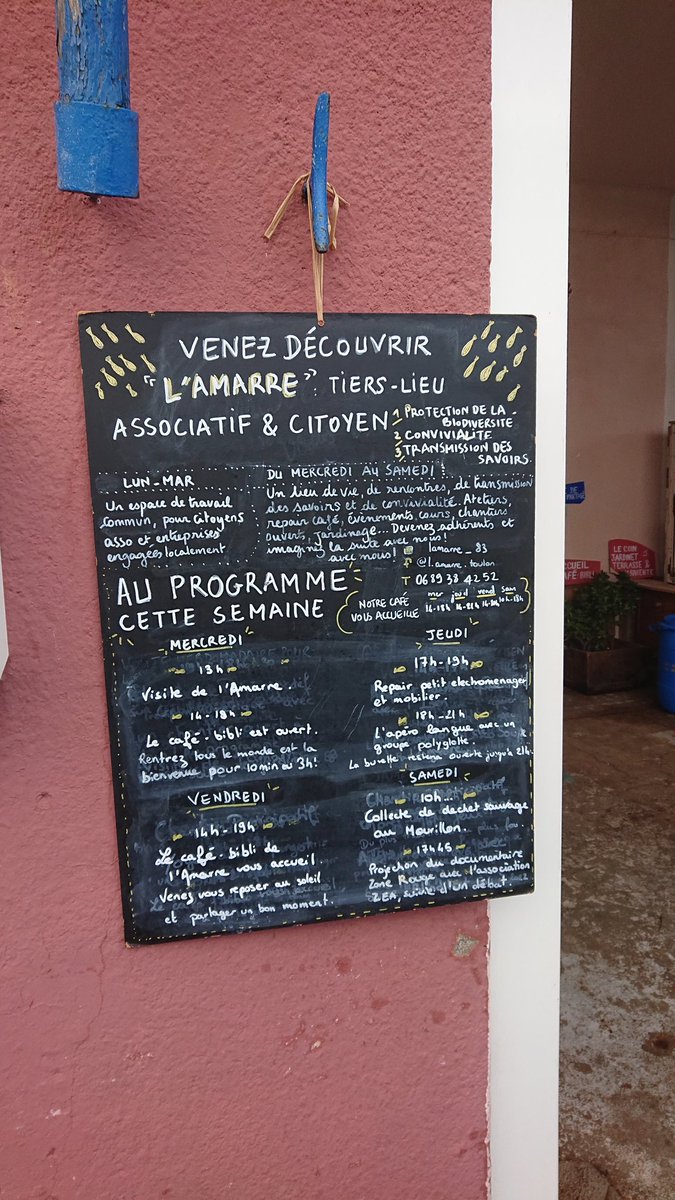 VENEZ DÉCOUVRIR
"L'AMARRE" TIERS-LIEU
ASSOCIATIF & CITOYEN
1 PROTECTION DE LA
BIODIVERSITÉ
2 CONVIVIALITÉ
3 TRANSMISSION DES
SAVOIRS.
LUN-MAR
Un espace de travail
commun, pour citoyens
asso et entreprises
engagées localement
DU MERCREDI AU SAMEDI!
Un lieu de vie, de rencontres, de transmission
des savoirs et de convivialité. Ateliers,
repair café, évènements, cours, chantiers
ouverts, jardinage. Devenez adhérents et
imaginez la suite avec nous!
avec nous!
lamarre_83
@l.amarre.toulon
T 06 89 38 42 52
AU PROGRAMME
CETTE SEMAINE
NOTRE CAFÉ
VOUS ACCUEILLE
mer jeud vend sam
14-18h 14-21h 14-19h 10h-18h
MERCREDI
13h
Visite de l'Amarre.
14-18h
Le café-bibli est ouvert.
Rentrez tous le monde est la
bienvenue pour 10min ou 3h!
JEUDI
17h-19h
Repair petit electromenager
et mobilier.
18h-21h
L'apéro langue avec un
groupe polyglotte.
La buvette restera ouverte jusqu'à 21h.
VENDREDI
14h-19h
Le café-bibli de
l'Amarre vous accueil.
Venez vous reposer au soleil
et partager un bon moment.
SAMEDI
10h...
Collecte de dechet sauvage
au Mourillon.
17h45
Projection du documentaire
Zone Rouge avec l'association
ZEA, suivie d'un débat.
LE COIN
JARDINET
TERRASSE &